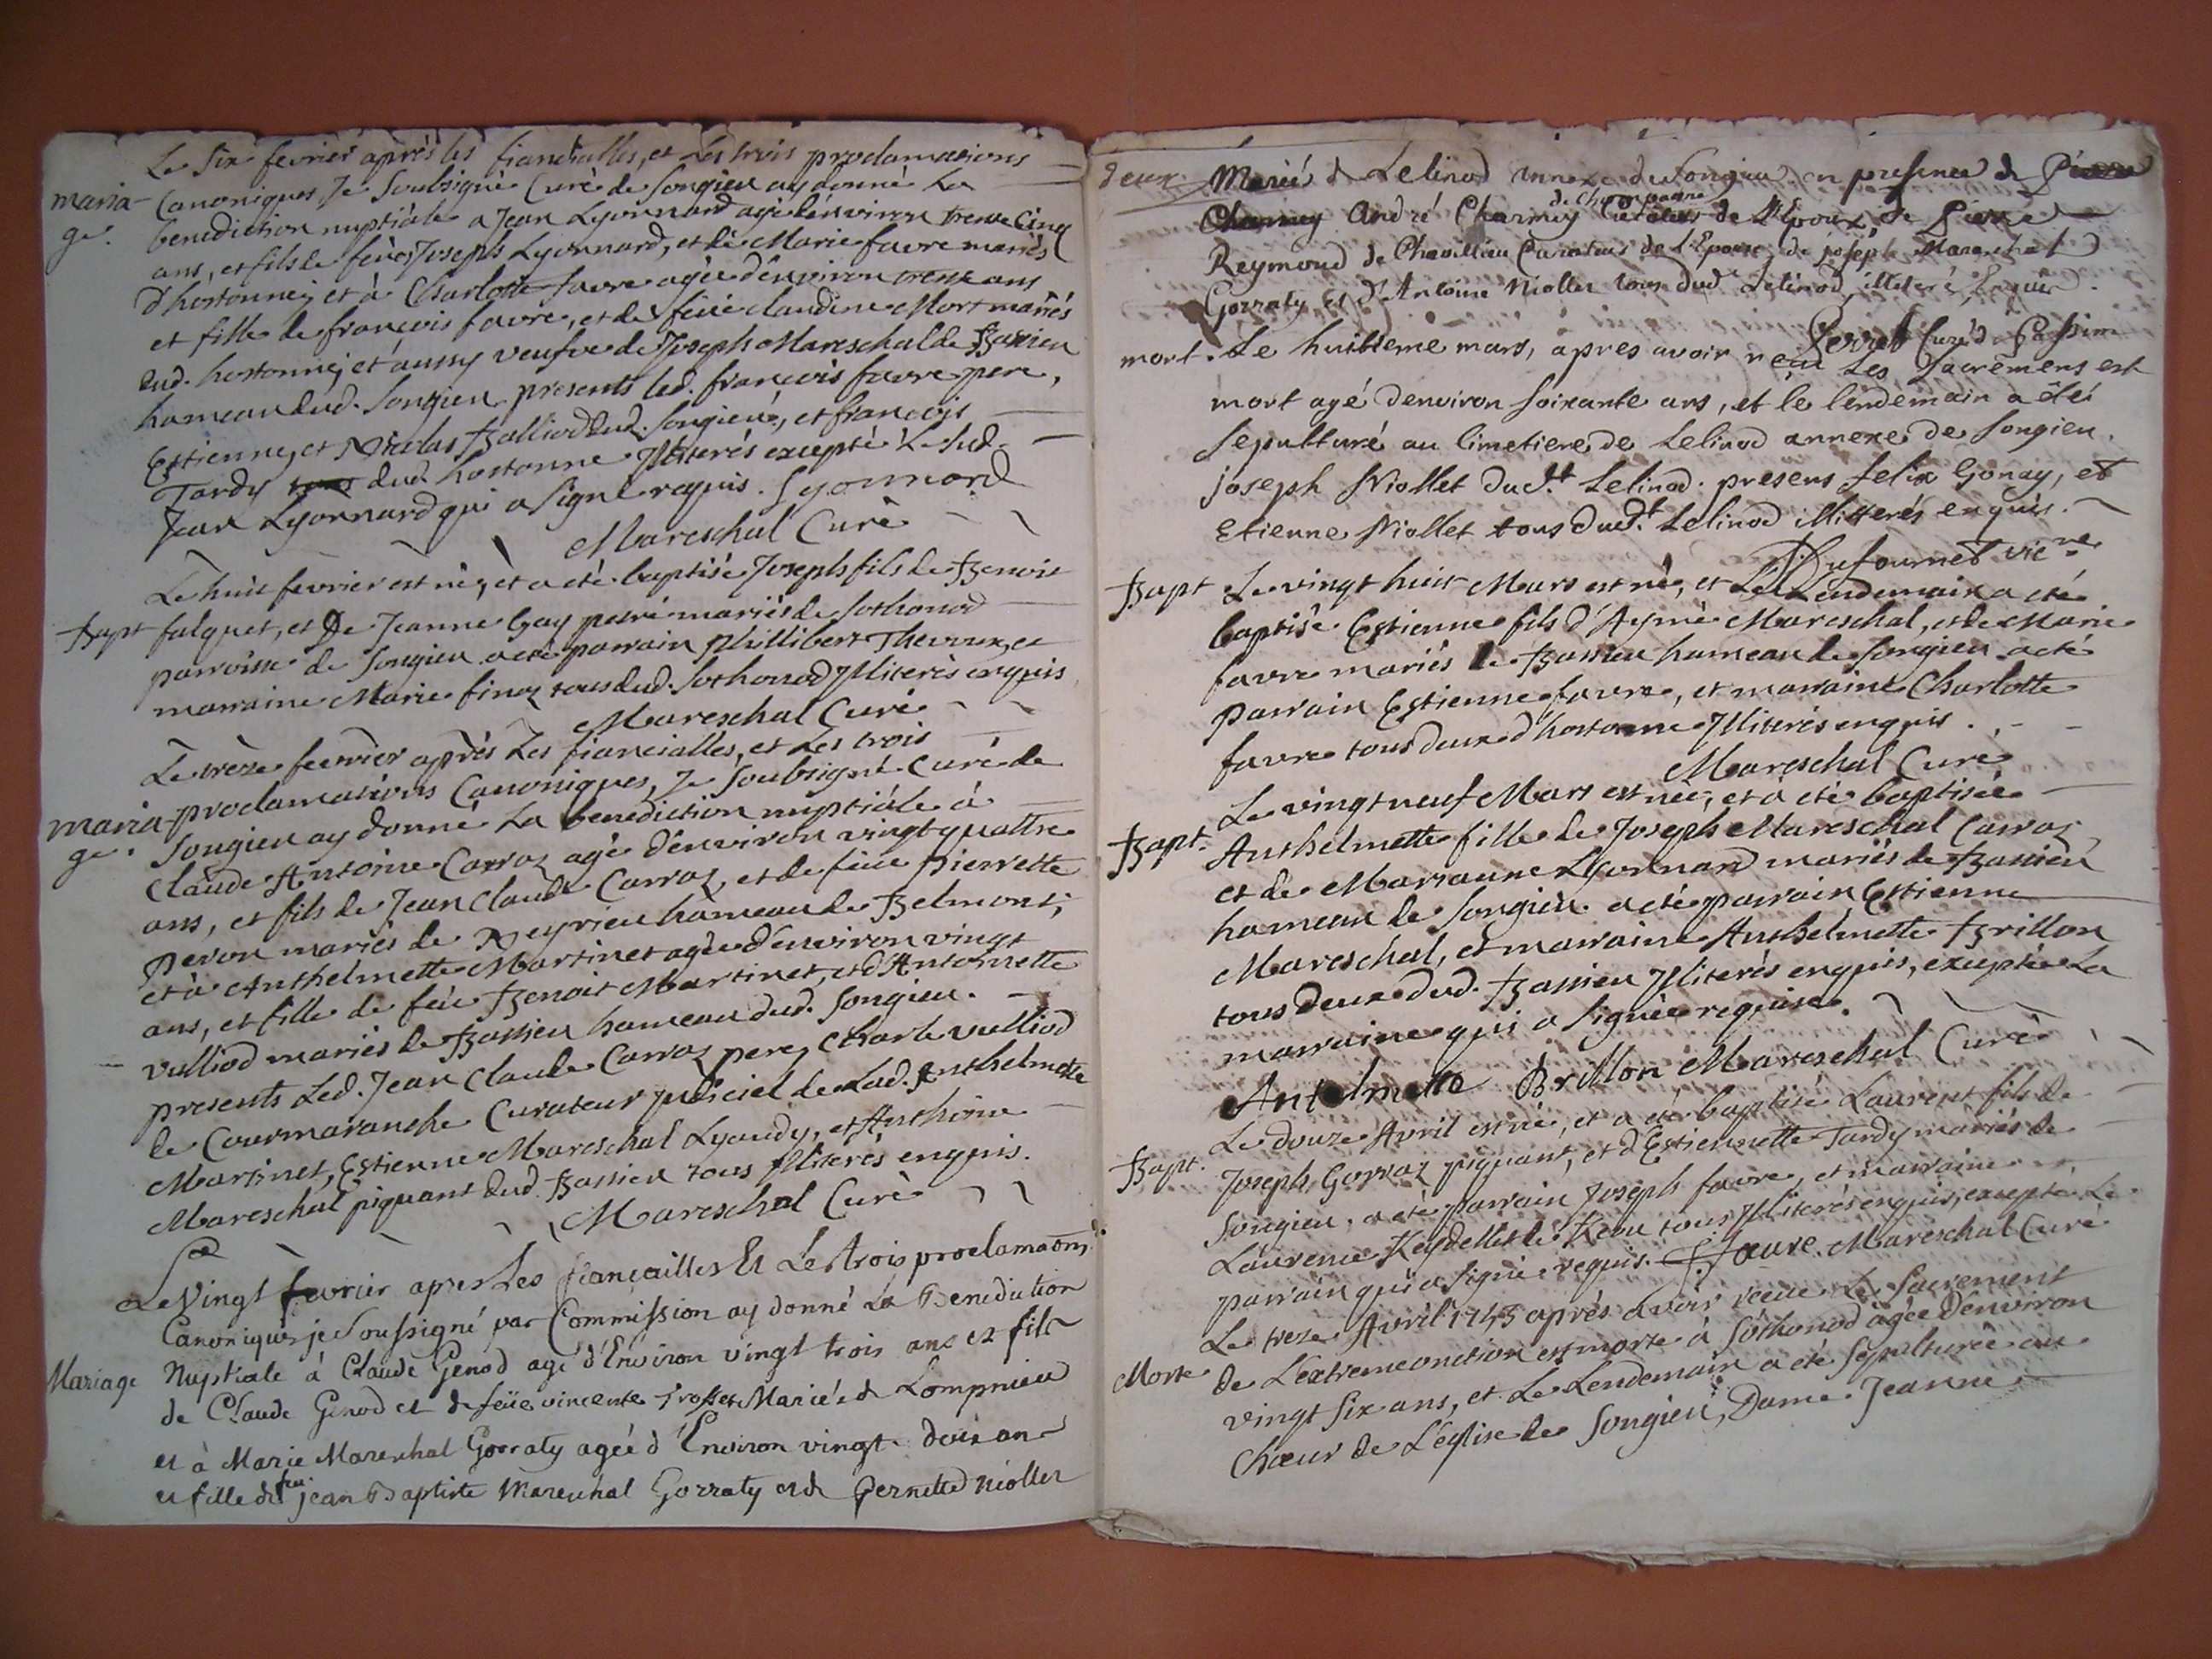 Le six fevrier après les fiancialles, et Les trois proclamations
maria- Canoniques, Je Soubsigné Curé de songieu ay donné La
ge. benediction nuptiale a Jean Lyonnard agé d'environ trente Cinq
ans, et fils de feüe Joseph Lyonnard, et de Marie favre mariés
d'hostonne, et à Charlotte favre agée d'environ trente ans
et fille de françois favre, et de feüe claudine Mort mariés
dud. hostonne, et aussy veufve de Joseph Mareschal de Bassieu
hameau dud. Songieu presents led. françois favre pere,
Estienne, et Nicolas Balliod dud. Songieu, et françois
Tardy dud. hostonne Illiterés excepté Le sud.
Jean Lyonnard qui a signé requis. Lyonnard
Mareschal Curé
Le huit fevrier est né, et a eté baptisé Joseph fils de Benoit
Bapt falquet, et De Jeanne Gay mariés de sothonod
parroisse de songieu a eté parrain Phillibert Thevoux, et
marraine Marie finaz tous dud. Sothonod Illiterés enquis
Mareschal Curé
Le treze feuvrier après Les fiancialles, et Les trois
maria- proclamations Canoniques, Je Soubsigné Curé de
ge. Songieu ay donné La benediction nuptiale à
Claude Antoine Carraz agé d'environ vingt quattre
ans, et fils de Jean Claude Carraz, et de feüe Pierrette
Peron mariés de Neyrieu hameau de Belmont;
et à Anthelmette Martinet agée d'environ vingt
ans, et fille de feu Benoit Martinet, et d'Antoinette
vulliod mariés de Bassieu hameau dud. Songieu.
presents Led. Jean Claude Carraz pere, Charle vulliod
de Courmaranche Curateur judiciel de Lad. Anthelmette
Martinet, Estienne Mareschal Lyaudy, et Anthoine
Mareschal piquant dud. Bassieu tous Illiterés enquis.
Mareschal Curé
Le Vingt fevrier apres Les fiançailles Et Les trois proclamaõns
Canoniques je Soussigné par Commission ay donné La Benediction
Mariage Nuptiale à Claude Genod agé d'Environ vingt trois ans et fils
de Claude Genod et de feüe vincente Trosset Mariés de Lompnieu
et à Marie Mareschal Gorraty agée d'Environ vingt deux ans
et fille de feu jean Baptiste Mareschal Gorraty et de Pernette Niollet
deux Mariés de Lelinod annexe de Songieu en presence de Pierre
Charmey André Charmey de champagne Curateur de L'Epoux, de Pierre
Reymond de Chavillieu Curateur de L'Epouse, de joseph Mareschal
Gorraty et d'Antoine Niollet tous dud Lelinod illiteré Enquis.
Perret Curé de Passim
mort. Le huitieme mars, apres avoir reçu Les Sacremens est
mort agé d'environ soixante ans, et le lendemain a êté
sepulturé au Cimetiere de Lelinod annexe de songieu
joseph Niollet dud.t Lelinod. presens felix Gonay, et
Etienne Niollet tous dud.t Lelinod illitterés enquis.
Dufournet vic.re
Bapt Le vingt huit Mars est né, et Le Lendemain a eté
baptisé Estienne fils d'Aymé Mareschal, et de Marie
favre mariés de Bassieu hameau de songieu a eté
parrain Estienne favre, et marraine Charlotte
favre tous deux d'hostonne Illiterés enquis.
Mareschal Curé
Le vingt neuf Mars est née, et a eté baptisée
Bapt. Anthelmette fille de Joseph Mareschal Carraz
et de Marianne Lyonnard mariés de Bassieu
hameau de Songieu. a eté parrain Estienne
Mareschal, et marraine Anthelmette Brillon
tous deux dud. Bassieu Illiterés enquis, excepté La
marraine qui a signée requise.
Antelmette Brillon Mareschal Curé
Le douze Avril est né, et a eté baptisé Laurent fils de
Bapt. Joseph Gorraz piquant, et d'Estiennette Tardy mariés de
Songieu. a eté parrain Joseph favre, et marraine
Laurence Reydellet de tous Illiterés enquis, excepté Le
parrain qui a signé requis. J favre. Mareschal Curé
Le treze Avril 1743 après avoir reçeüe Le Sacrement
Morte de L'extremeonction est morte à Sothonod agée d'environ
vingt six ans, et Le Lendemain a eté sepulturée au
Chœur de L'eglise de Songieu, Dame Jeanne